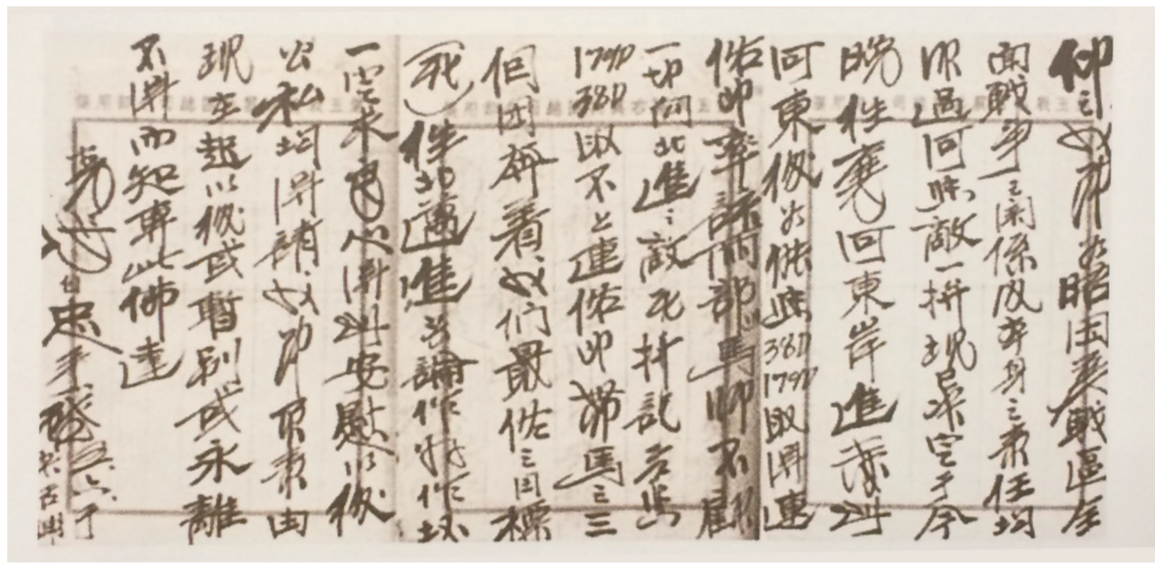 仰之我弟如晤因爲戰區全
面戰爭之關係及本身之責任均
須過河與敵一拼現已決定于今
晚往襄河東岸進發到
河東後如能與38D179D取得連
絡即率該兩部與馬師不顧
一切向北進之敵死拚設若與
179D38D取不上連絡即帶馬之三
個團奔着我們最終之目標
(死)往北邁進無論作好作壞
一定求良心得到安慰以後
公私均得請我弟負責由
現在起以後或暫別或永離
不得而知專此佈達
小兄自忠手啓五六于